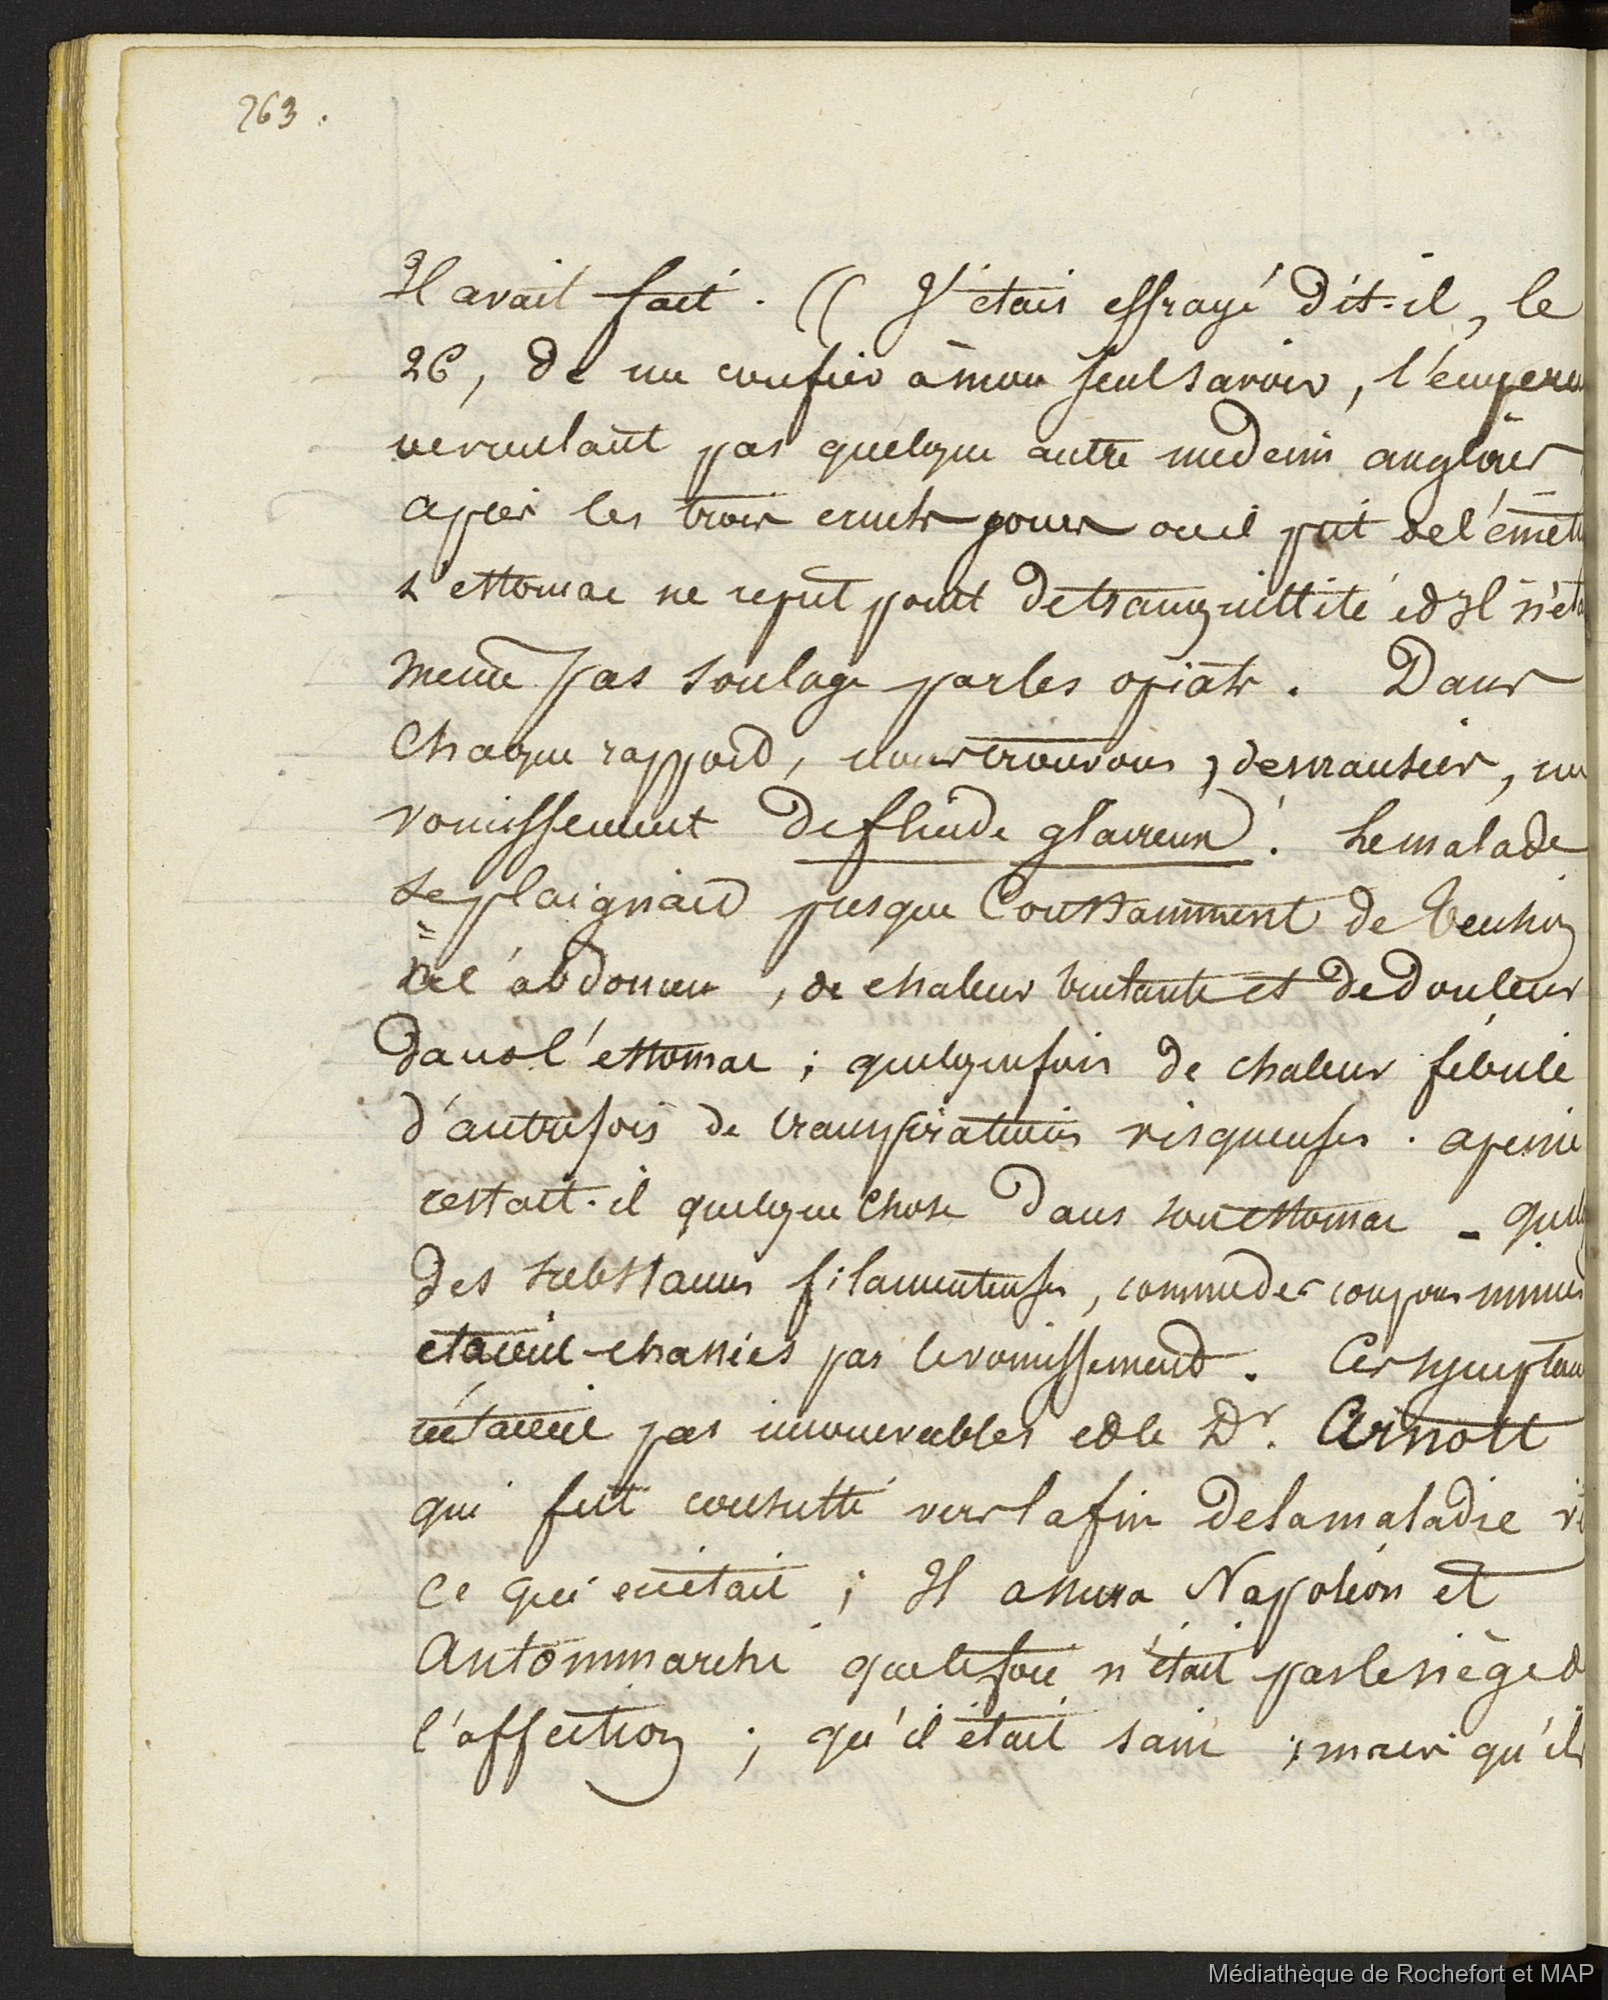 263.
Il avait fait. (( J'étais effrayé dit-il, le
26, de me confier à mon seul savoir, l'empereu
ne voulant pas quelque autre medecin anglais
après les trois jours ou il prit de l'émet
l'estomac ne reprit point de tranquillité et Il n'éta
meme pas soulagé par les opiats. Dans
Chaque rapport, nous trouvons, demausier, un
vomissement de fluide glaireux. Le malade
se plaignait presque Constamment de tension
de l'abdomen, de chaleur brulante et de Douleur
dans l'estomac; quelquefois de chaleur fébrile
d'autrefois de transpirations visqueuses. apeine
restait-il quelque Chose Dans son estomac - quelq
des substances filamenteuses, comme des coupons minces
etaient chassées par le vomissement. Ces symptom
n'étaient pas innombrables et le Dr. Arnott
qui fut consulté vers la fin de la maladie vi
ce qui en était; Il assura Napoléon et
Antommarchi que le foie n'était pas le siège d
l'affection; qu'il était sain; mais qu'il
Médiathèque de Rochefort et MAP